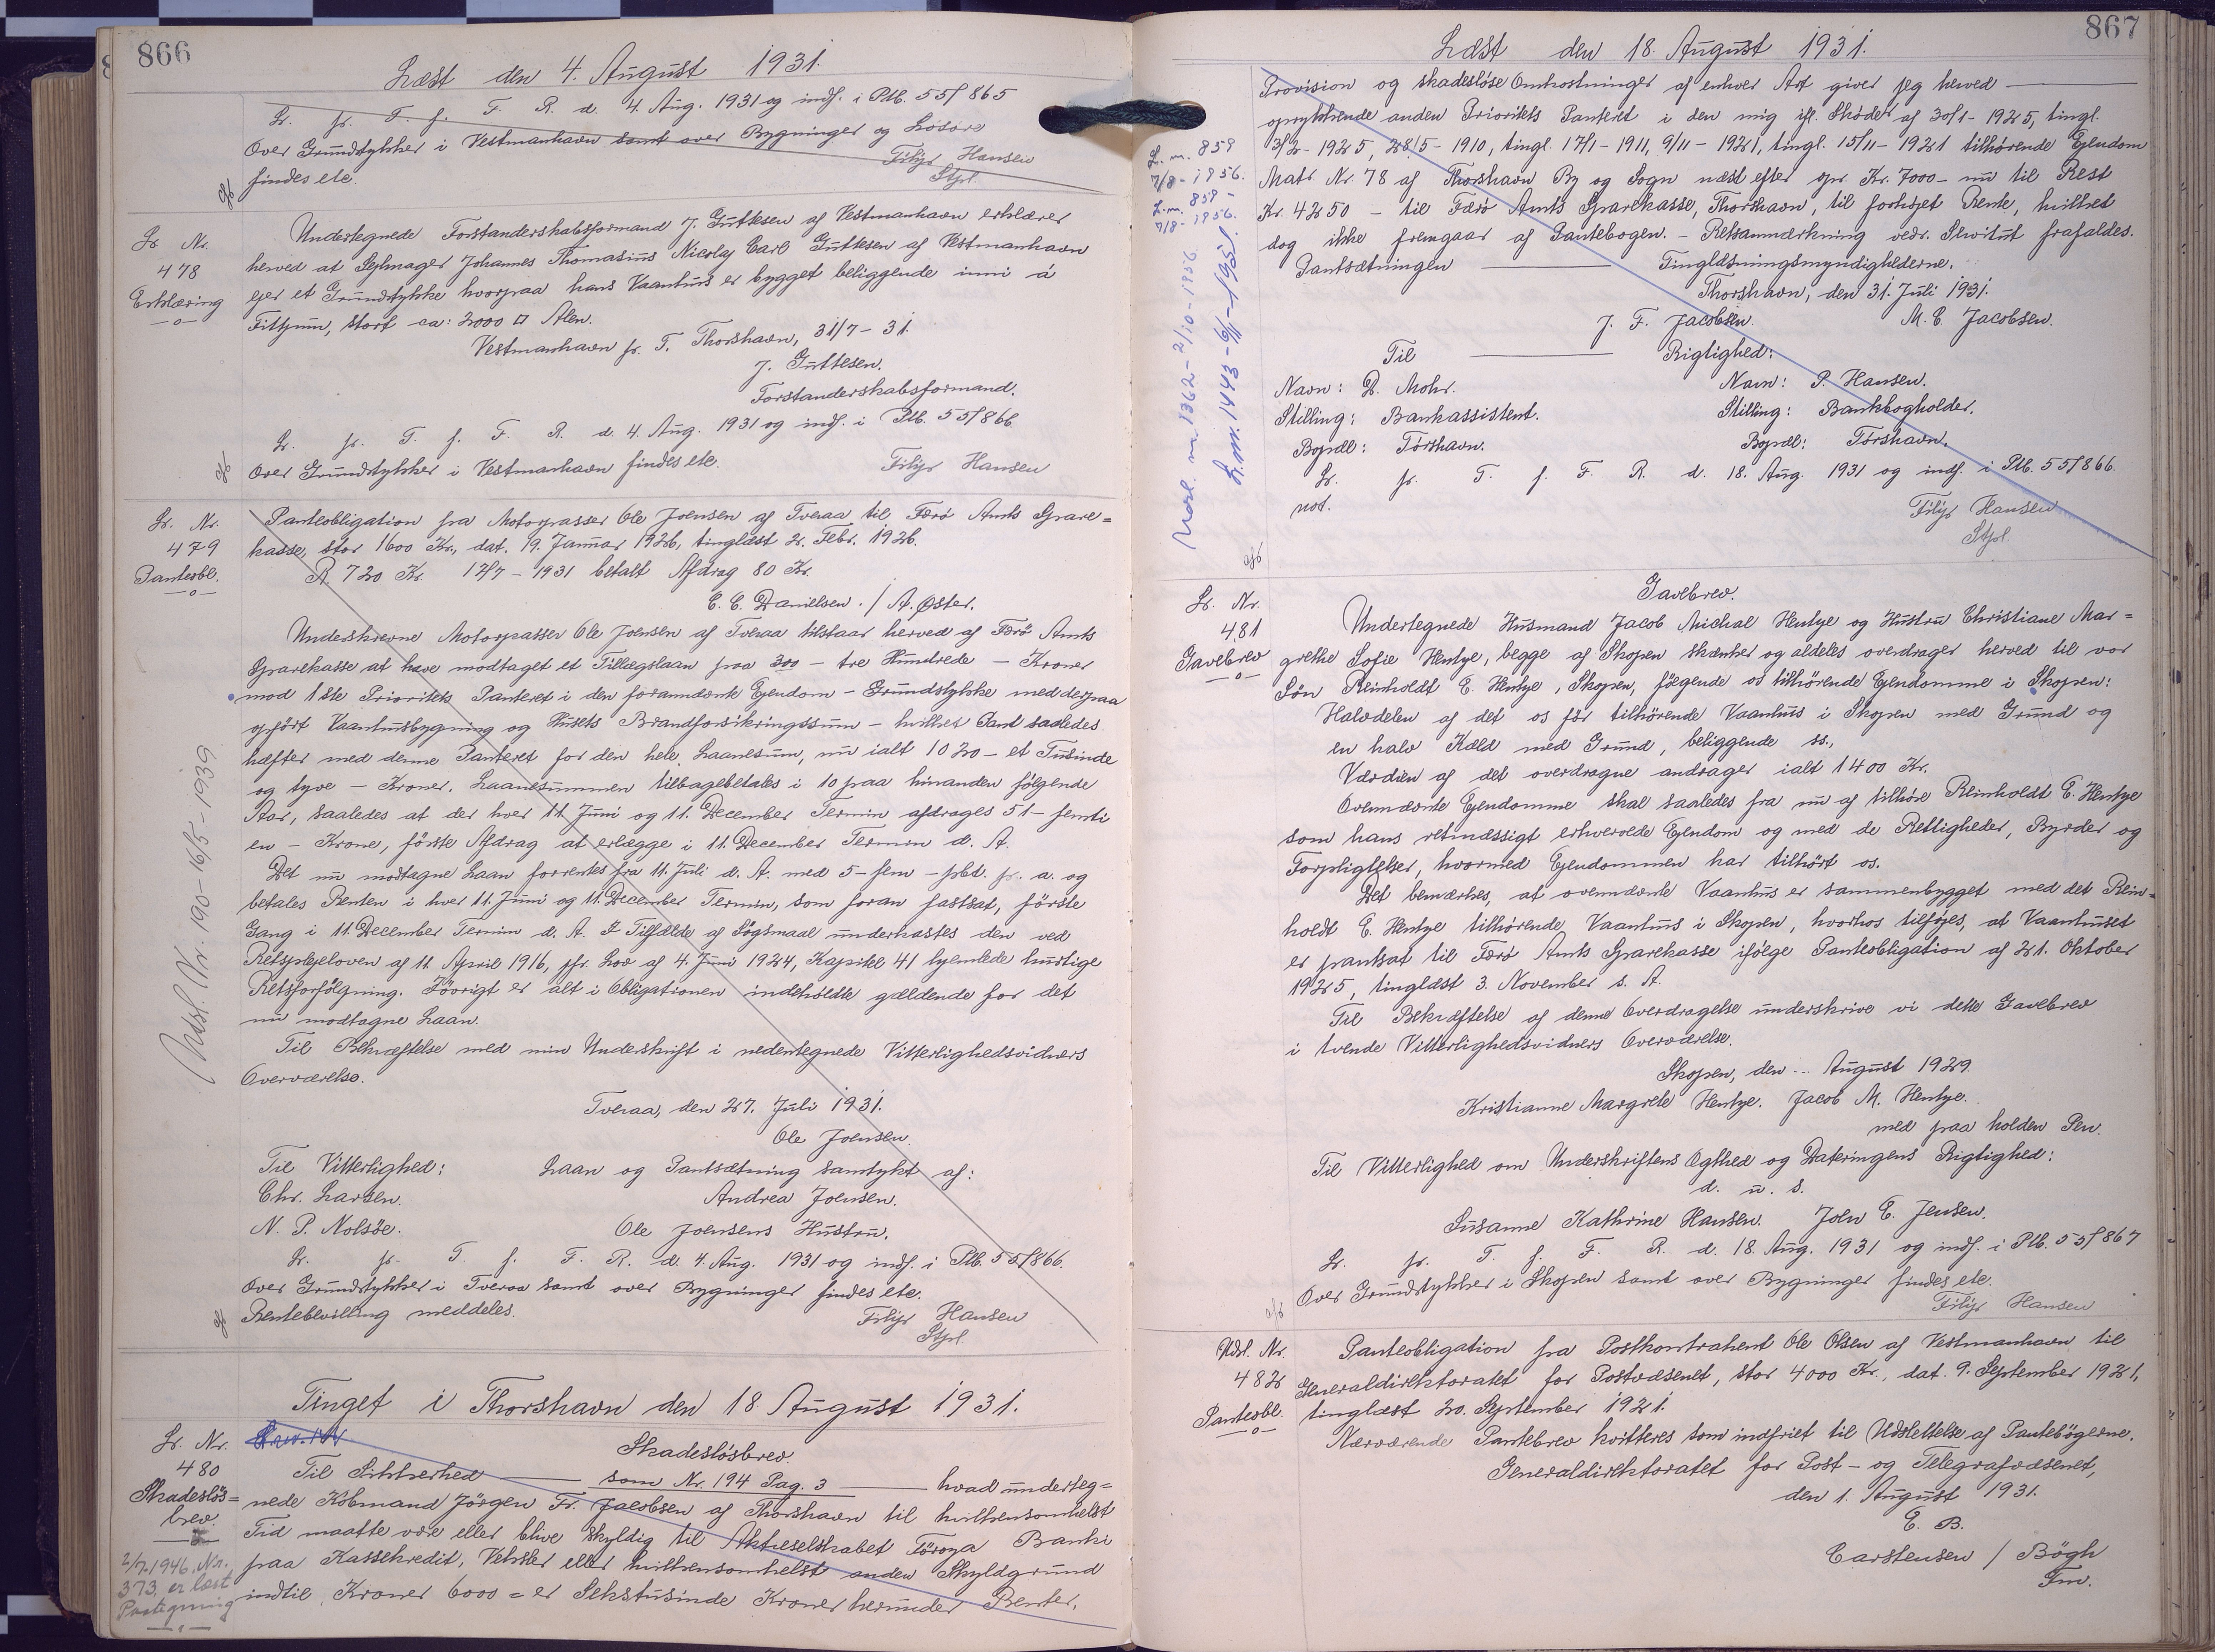 866
Læst den 4. August 1931.
Lr. pr. T. f. F. R. d. 4. Aug. 1931 og indf. i Ptb. 55f 865
Over Grundstykker i Vestmanhavn samt over Bygninger og Løsøre
findes etc.
Filip Hansen
Stpl.
Lr. Nr.
478
Erklæring
Undertegnede Forstanderskabsformand J. Guttesen af Vestmanhavn erklærer
herved at Sejlmager Johannes Thomasius Nicolaj Carl Guttesen af Vestmanhavn
ejer et Grundstykke hvorpaa hans Vaanhus er bygget beliggende inni á
Fitjum, stort ca: 2000 □ Alen.
Vestmanhavn pr. T. Thorshavn, 31/7 - 31.
J. Guttesen.
Forstanderskabsformand.
Lr. pr. T. f. F. R. d. 4. Aug. 1931 og indf. i Ptb. 55f 866
Over Grundstykker i Vestmanhavn findes etc.
Filip Hansen
Lr. Nr.
479
Pantesbl.
Panteobligation fra Motorpasser Ole Joensen af Tveraa til Færø Amts Spare=
kasse, stor 1600 Kr., dat. 19. Januar 1926, tinglæst 2. Febr. 1926.
R. 720 Kr. 12/7 - 1931 betalt Afdrag 80 Kr.
C. C. Danielsen. / A. Øster.
Underskrevne Motorpasser Ole Joensen af Tveraa tilstaar herved af Færø Amts
Sparekasse at have modtaget et Tillægslaan paa 300 - tre Hundrede - Kroner
mod 1ste Prioritets Panteret i den forannævnte Ejendom - Grundstykke med derpaa
opført Vaanhusbygning og Husets Brandforsikringssum - hvilket Pant saaledes
hæfter med denne Panteret for den hele Laanesum, nu ialt 1020 - et Tusinde
og tyve - Kroner. Laanesummen tilbagebetales i 10 paa hinanden følgende
Aar, saaledes at der hver 11. Juni og 11. December Termin afdrages 51 - femti
en - Krone, første Afdrag at erlægge i 11. December Termin d. A.
Det nu modtagne Laan forrentes fra 11. Juli d. A. med 5 - fem - pct. p. a. og
betales Renten i hver 11. Juni og 11. December Termin, som foran fastsat, første
Gang i 11. December Termin d. A. I Tilfælde af Søgsmaal underkastes den ved
Retsplejeloven af 11. April 1916, jfr. Lov af 4. Juni 1924, Kapitel 41 hjemlede hurtige
Retsforfølgning. Iøvrigt er alt i Obligationen indeholdte gældende for det
nu modtagne Laan.
Til Bekræftelse med min Underskrift i nedentegnede Vitterlighedsvidners
Overværelse.
Tveraa, den 27. Juli 1931.
Ole Joensen.
Til Vitterlighed: Laan og Pantsætning samtykt af:
Chr. Larsen. Andrea Joensen.
N. P. Nolsøe. Ole Joensens Hustru.
Lr. pr. T. f. F. R. d. 4. Aug. 1931 og indf. i Ptb. 55f 866.
Over Grundstykker i Tveraa samt over Bygninger findes etc.
Rentebevilling meddeles.
Filip Hansen
Stpl.
Udsl. Nr. 190 - 16/5 - 1939
Tinget i Thorshavn den 18. August 1931.
Lr. Nr.
480
Skadesløs=
brev.
2/7-1946. Nr.
373 er læst
Paategning
Skadesløsbrev.
Til Sikkerhed — som Nr. 194 Pag. 3 — hvad underteg=
nede Købmand Jörgen Fr. Jacobsen af Thorshavn til hvilkensomhelst
Tid maatte være eller blive skyldig til Aktieselskabet Föroya Banki
paa Kassekredit, Veksler eller hvilkensomhelst anden Skyldgrund
indtil Kroner 6000 = er Sekstusinde Kroner herunder Renter,
867
Læst den 18. August 1931.
Provision og skadesløse Omkostninger af enhver Art giver jeg herved —
oprykkende anden Prioritets Panteret i den mig ifl. Skøder af 30/1 - 1925, tingl.
3/2 - 1925, 28/5 - 1910, tingl. 17/1 - 1911, 9/11 - 1921, tingl. 15/11 - 1921 tilhørende Ejendom
Matr. Nr. 78 af Thorshavn By og Sogn næst efter opr. Kr. 7000 - nu til Rest
Kr. 4250 - til Færø Amts Sparekasse, Thorshavn, til forhøjet Rente, hvilket
dog ikke fremgaar af Pantebogen. - Retsanmærkning vedr. Servitut frafaldes.
Pantsætningen — Tinglæsningsmyndighederne.
Thorshavn, den 31. Juli 1931.
J. F. Jacobsen. M. C. Jacobsen.
Til — Rigtighed:
Navn: D. Mohr. Navn: P. Hansen.
Stilling: Bankassistent. Stilling: Bankbogholder.
Bopæl: Tórshavn. Bopæl: Tórshavn.
Lr. pr. T. f. F. R. d. 18. Aug. 1931 og indf. i Ptb. 55f 866.
not.
Filip Hansen
Stpl.
L. m. 859
7/8 - 1956.
L. m. 859 -
7/8 - 1956.
Udsl. m. 1362 - 2/10 - 1956
L. m. 1443 - 6/11 - 1951.
Lr. Nr.
481
Gavebrev
Gavebrev.
Undertegnede Husmand Jacob Michal Hentze og Hustru Christiane Mar=
grethe Sofie Hentze, begge af Skopen skænker og aldeles overdrager herved til vor
Søn Reinholdt E. Hentze, Skopen, følgende os tilhørende Ejendomme i Skopen:
Halvdelen af det os før tilhørende Vaanhus i Skopen med Grund og
en halv Kæld med Grund, beliggende ss.,
Værdien af det overdragne andrager ialt 1400 Kr.
Ovennævnte Ejendomme skal saaledes fra nu af tilhøre Reinholdt E. Hentze
som hans retmæssigt erhvervede Ejendom og med de Rettigheder, Byrder og
Forpligtelser, hvormed Ejendommen har tilhørt os.
Det bemærkes, at ovennævnte Vaanhus er sammenbygget med det Rein=
holdt E. Hentze tilhørende Vaanhus i Skopen, hvorhos tilføjes, at Vaanhuset
er pantsat til Færø Amts Sparekasse ifølge Panteobligation af 21. Oktober
1925, tinglæst 3. November s. A.
Til Bekræftelse af denne Overdragelse underskrive vi dette Gavebrev
i tvende Vitterlighedsvidners Overværelse.
Skopen, den ... August 1929.
Kristianne Margrete Hentze. Jacob M. Hentze.
med paa holden Pen.
Til Vitterlighed om Underskriftens Ægthed og Dateringens Rigtighed:
d. u. s.
Susanne Kathrine Hansen. John E. Jensen.
Lr. pr. T. f. F. R. d. 18. Aug. 1931 og indf. i Ptb. 55f 867
Over Grundstykker i Skopen samt over Bygninger findes etc.
Filip Hansen
Udsl. Nr.
482
Pantesbl.
Panteobligation fra Postkontrahent Ole Olsen af Vestmanhavn til
Generaldirektoratet for Postvæsenet, stor 4000 Kr., dat. 9. September 1921,
tinglæst 20. September 1921.
Nærværende Pantebrev kvitteres som indfriet til Udslettelse af Pantebøgerne.
Generaldirektoratet for Post- og Telegrafvæsenet,
den 1. August 1931.
E. B.
Carstensen / Bögh
Fm.